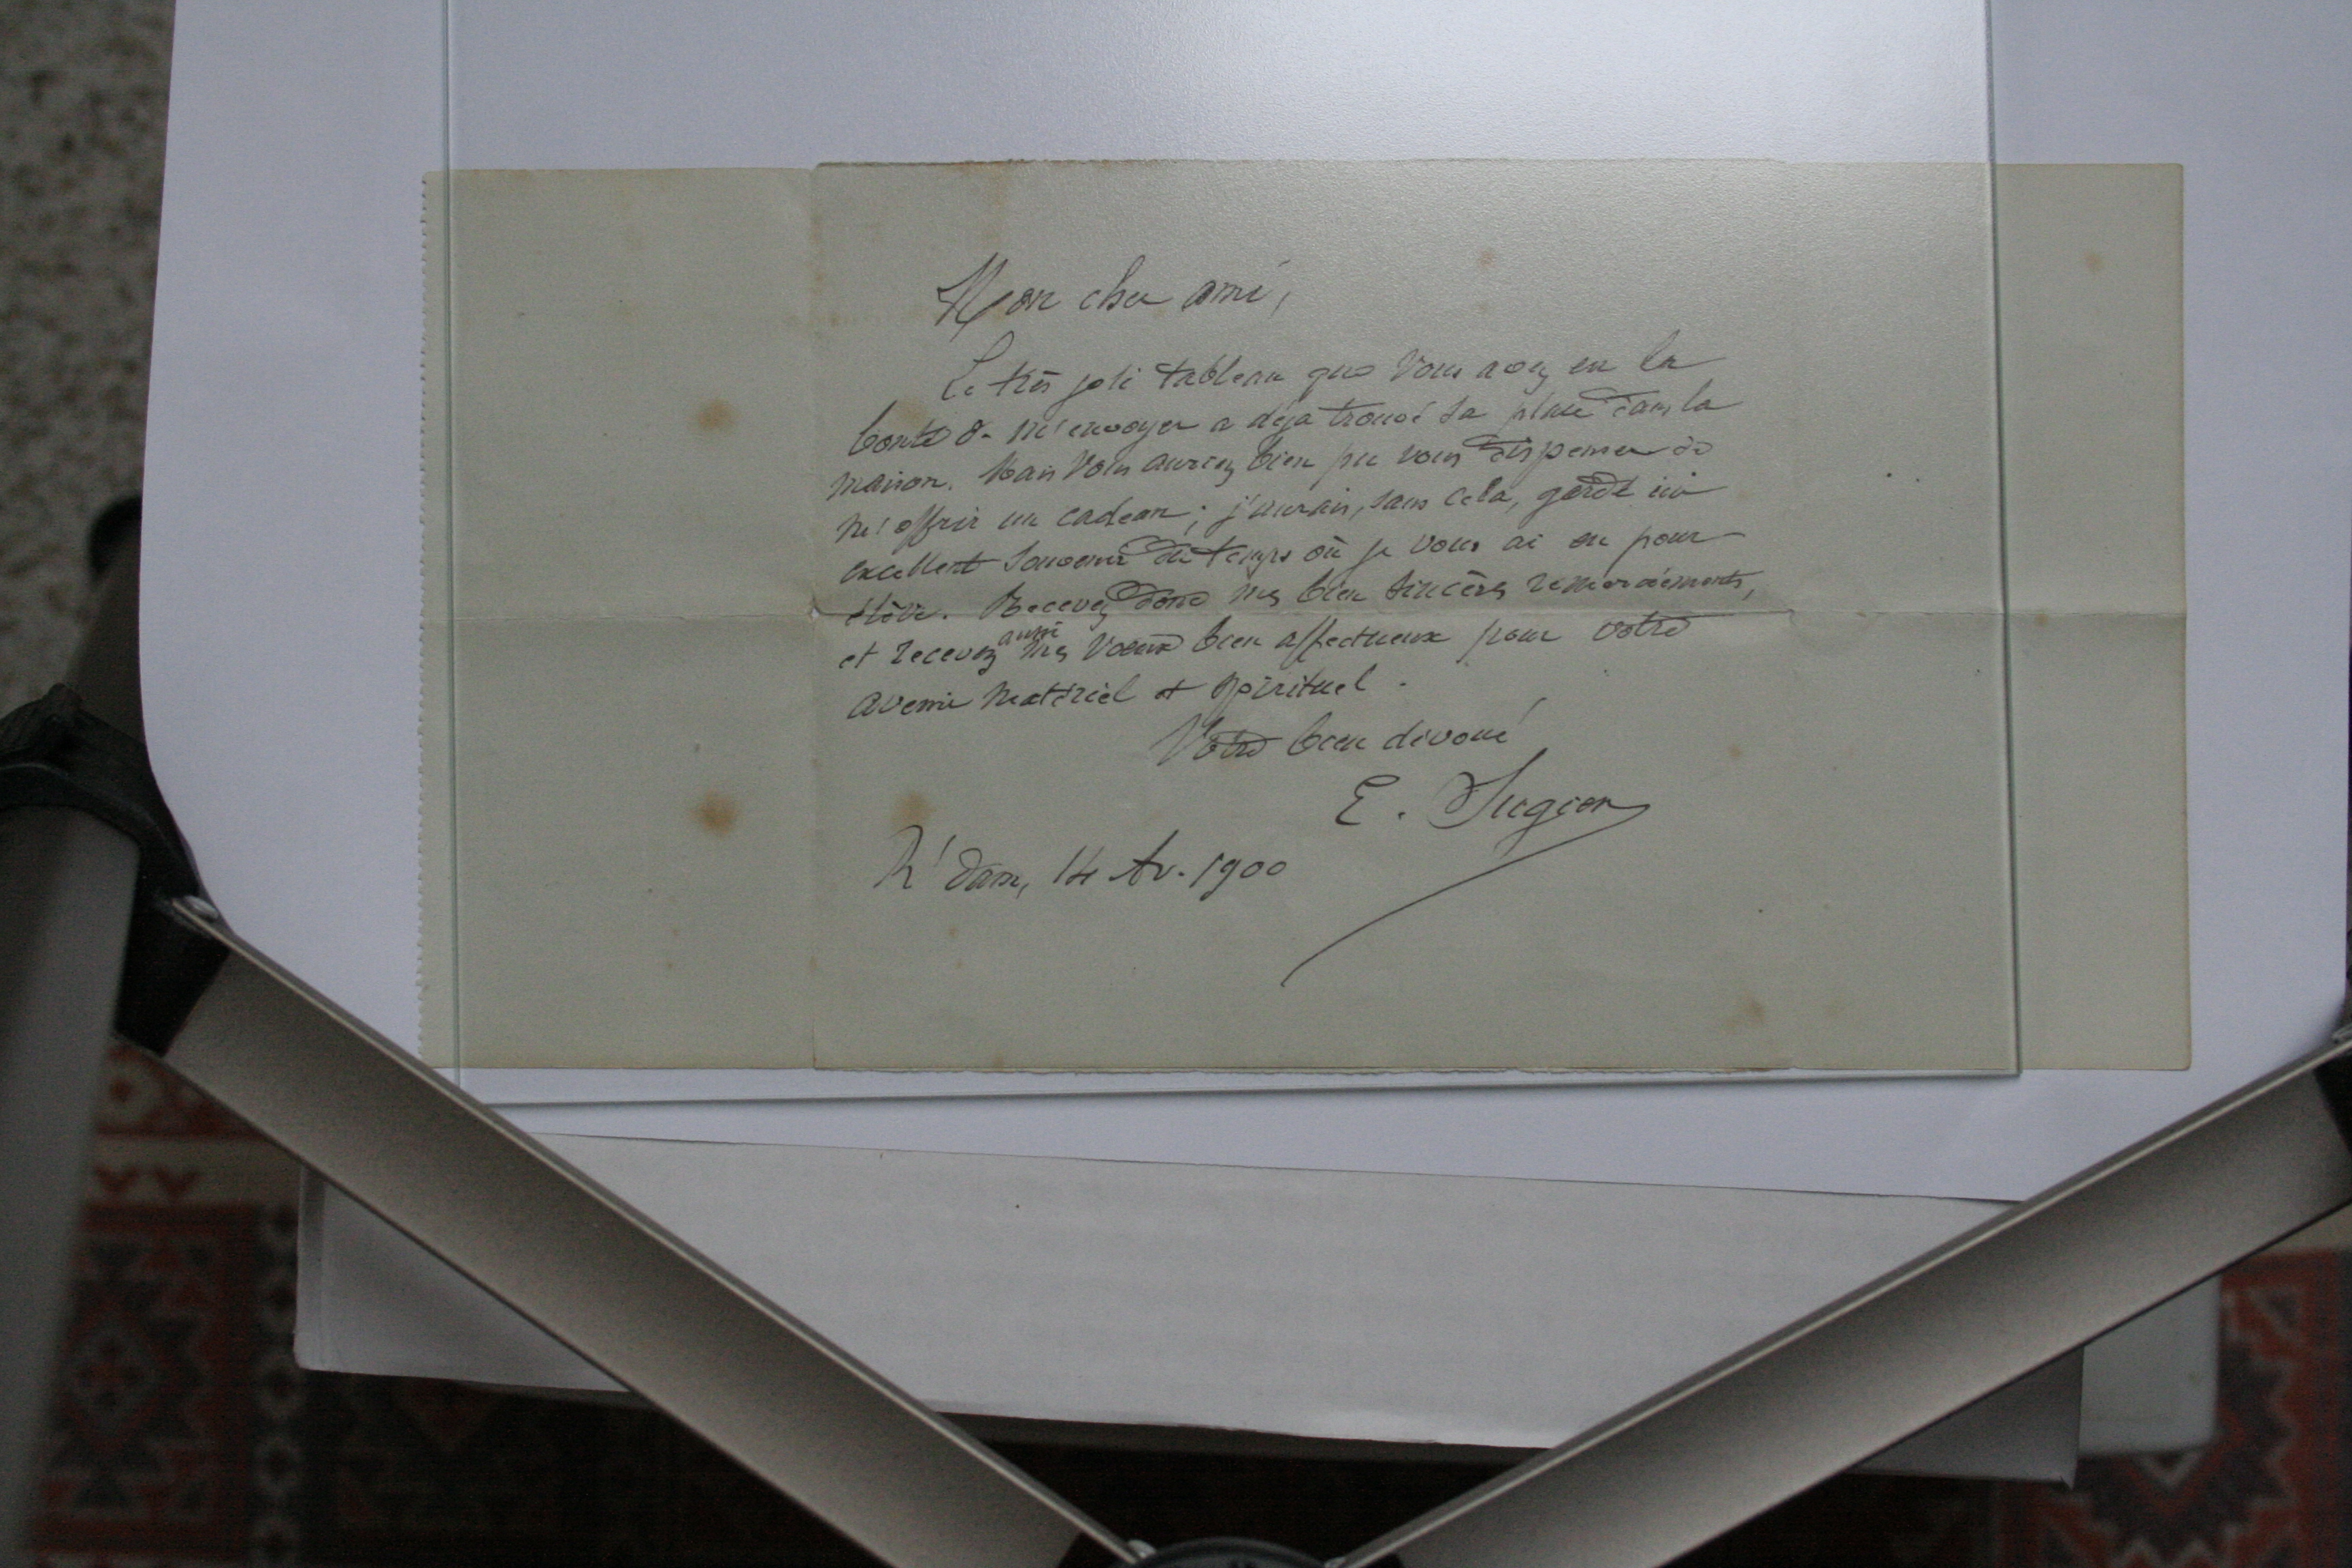 Mon cher ami,
Le très joli tableau que vous avez eu la
bonté de m'envoyer a déja trouvé sa place dans la
maison. Mais vous auriez bien pu vous dispenser de
m'offrir un cadeau ; j'aurais, sans cela, gardé un
excellent souvenir du temps où je vous ai eu pour
élève. Recevez donc mes bien sincères remerciements,
et recevez aussi mes vœux bien affectueux pour votre
avenir matériel et spirituel.
Votre bien dévoué
E.
R'dam, 14 Av. 1900